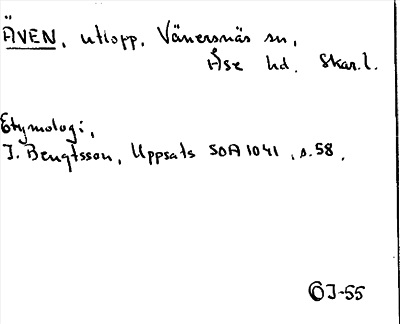 ÄVEN, utlopp, Vänersnäs sn,
Åse hd. Skar.l.
Etymologi,
J. Bengtsson, Uppsats SOA 1041, s.58,
OJ-55